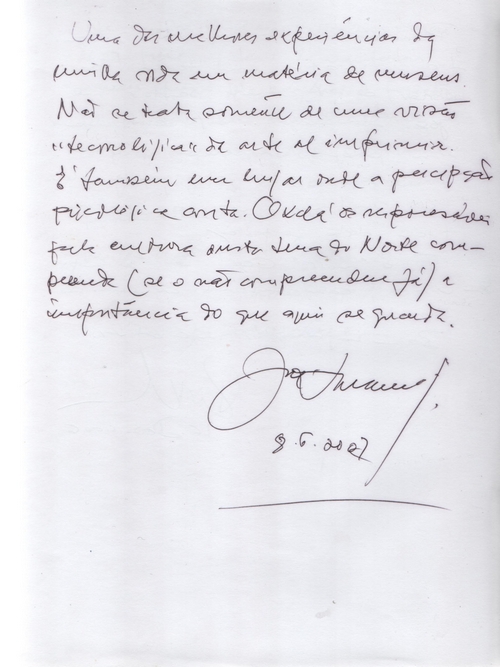 Uma das melhores experiências da
minha vida em matéria de museus.
Não se trata somente de uma visão
"tecnológica" da arte de imprimir.
É também um lugar onde a percepção
psicológica conta. Oxalá os responsáveis
pela cultura nesta terra do Norte com-
preenda (se o não compreendem já) a
importância do que aqui se guarda.
8.5.2007